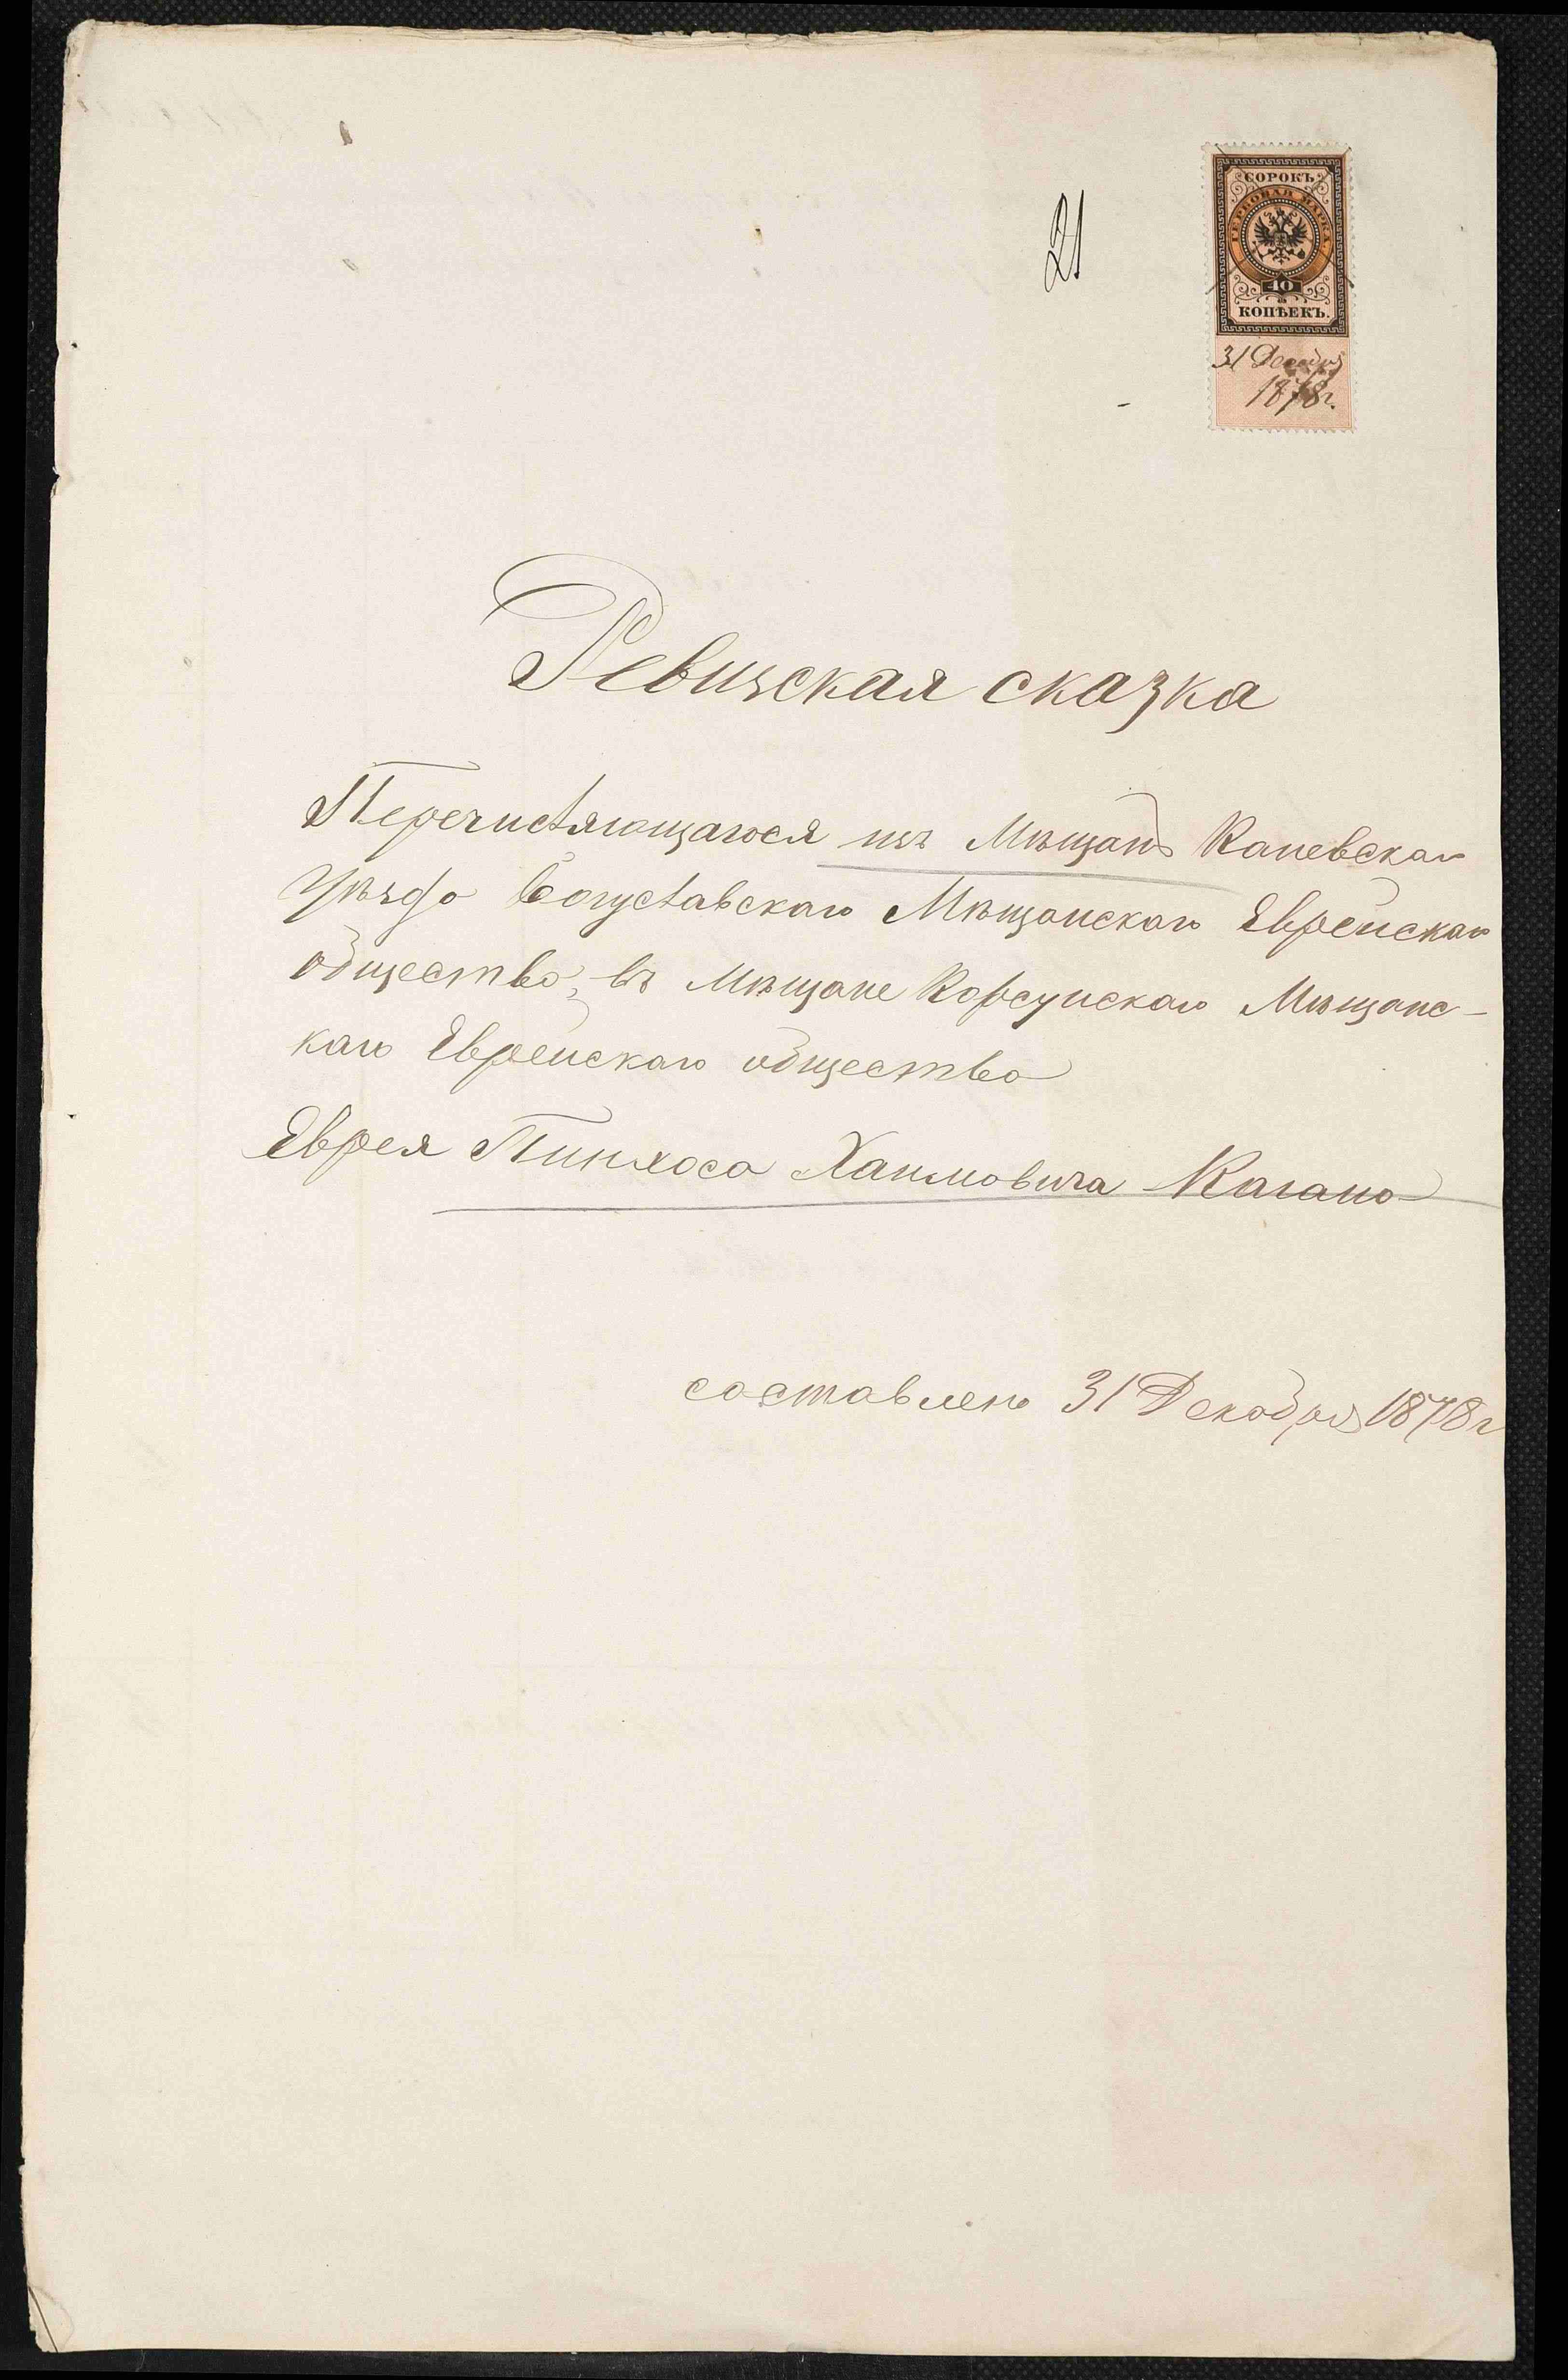 21
СОРОКЪ
ГЕРБОВАЯ МАРКА
40
КОПѢЕКЪ.
31 Декабря
1878г.
Ревизская сказка
Перечисляющагося изъ Мѣщанъ Каневскаго
Уѣзда Богуславскаго Мѣщанскаго Еврейскаго
общества, въ Мѣщане Корсунскаго Мѣщанс-
каго Еврейскаго общества
Еврея Пинхоса Хаимовича Кагана
составлена 31 Декабря 1878г